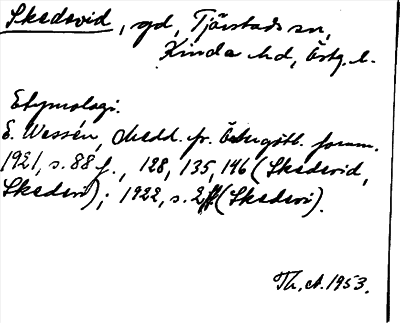 Skedevid, gd, Tjärstads sn,
Kinda hd, Östg. l.
Etymologi.
E. Wessén, Medd. fr. Östergötl. fornm.
1921, s. 88 f., 128, 135, 146 (Skedevid,
Skedevi); 1922, s. 2ff (Skedevi).
Th. A. 1953.